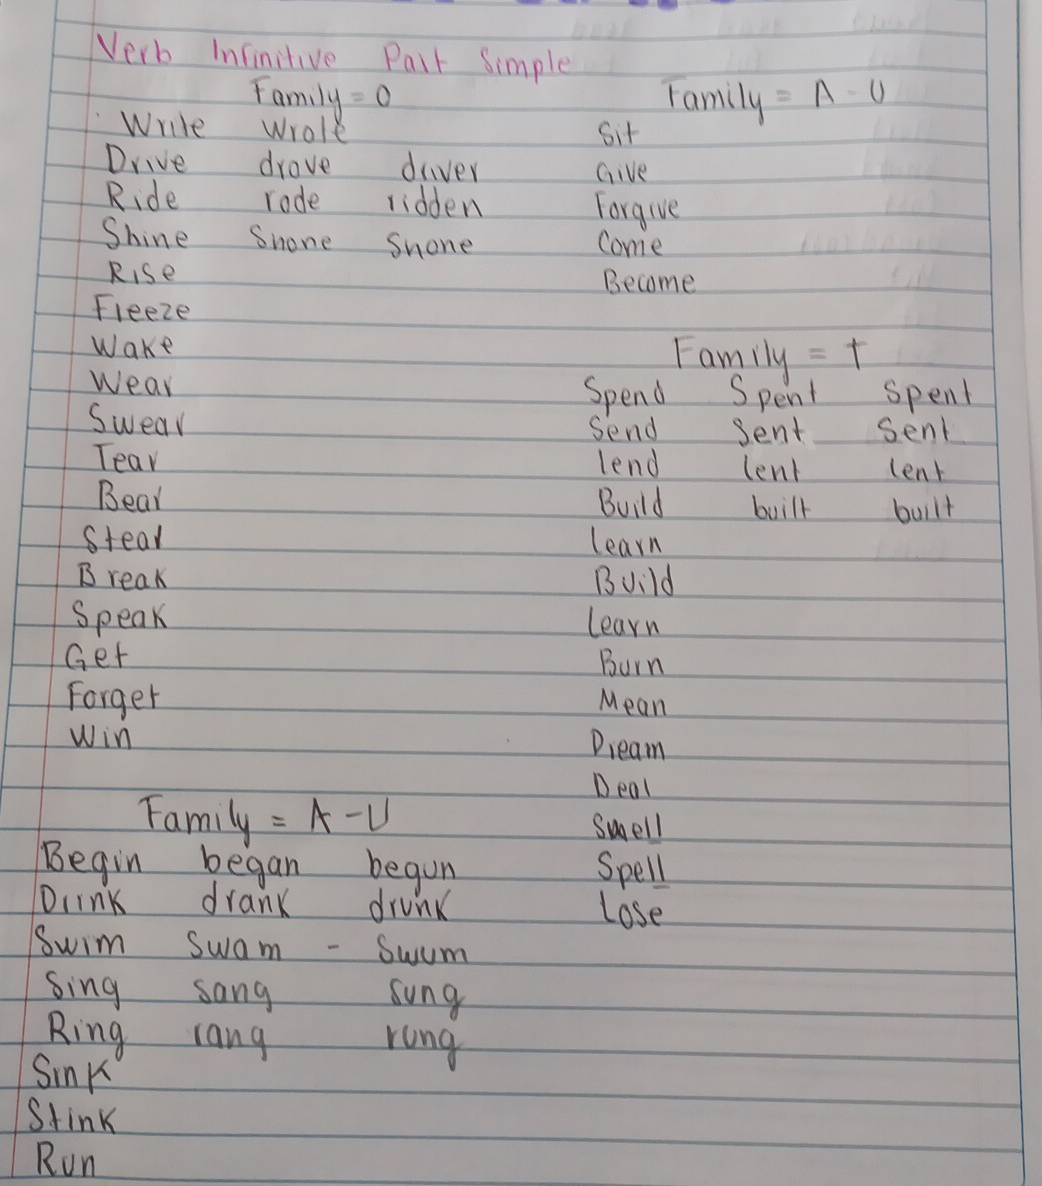 Verb Infinitive Past Simple
Family = O
Write Wrote
Drive drove driver
Ride rode ridden
Shine Shone Shone
Rise
Freeze
Wake
Wear
Swear
Tear
Bear
Steal
Break
Speak
Get
Forget
Win
Family = A - U
Begin began begun
Drink drank drunk
Swim swam - Swum
Sing sang sung
Ring rang rung
Sink
Stink
Run
Family = A - U
Sit
Give
Forgive
Come
Become
Family = t
Spend Spent Spent
Send Sent Sent
lend lent lent
Build built built
learn
Build
learn
Burn
Mean
Dream
Deal
Smell
Spell
Lose